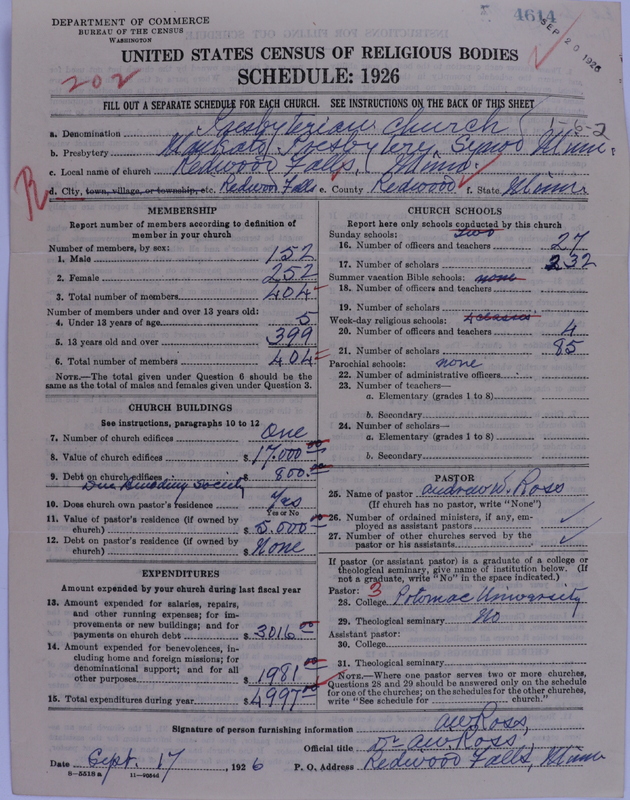 DEPARTMENT OF COMMERCE
BUREAU OF THE CENSUS
WASHINGTON
4614
SEP 20 1926
202
UNITED STATES CENSUS OF RELIGIOUS BODIES
SCHEDULE: 1926
FILL OUT A SEPARATE SCHEDULE FOR EACH CHURCH. SEE INSTRUCTIONS ON THE BACK OF THIS SHEET
a. Denomination Presbyterian Church 1-6-2
b. Presbytery Mankato Presbytery, Synod Minn.
c. Local name of church Redwood Falls, Minn.
R
d. City, town, village, or township, etc. Redwood Falls e. County Redwood f. State Minn.
MEMBERSHIP
Report number of members according to definition of
member in your church
Number of members, by sex:
1. Male 152
2. Female 252
3. Total number of members 404
Number of members under and over 13 years old:
4. Under 13 years of age 5
5. 13 years old and over 399
6. Total number of members 404
NOTE.—The total given under Question 6 should be
same as the total of males and females given under Question 3.
CHURCH BUILDINGS
See instructions, paragraphs 10 to 12
7. Number of church edifices One
8. Value of church edifices $17.000 00
9. Debt on church edifices $800.00
Due Building Society
10. Does church own pastor's residence Yes
Yes or No
11. Value of pastor's residence (if owned by
church) $5.000 00
12. Debt on pastor's residence (if owned by
church) $None
EXPENDITURES
Amount expended by your church during last fiscal year
13. Amount expended for salaries, repairs,
and other running expenses; for im-
provements or new buildings; and for
payments on church debt $3016 00
14. Amount expended for benevolences, in-
cluding home and foreign missions; for
denominational support; and for all
other purposes $1981 00
15. Total expenditures during year $4997 00
CHURCH SCHOOLS
Report here only schools conducted by this church
Sunday schools: two
16. Number of officers and teachers 27
17. Number of scholars 232
Summer vacation Bible schools: none
18. Number of officers and teachers
19. Number of scholars
Week-day religious schools:
20. Number of officers and teachers 4
21. Number of scholars 85
Parochial schools: none
22. Number of administrative officers
23. Number of teachers—
a. Elementary (grades 1 to 8)
b. Secondary
24. Number of scholars—
a. Elementary (grades 1 to 8)
b. Secondary
PASTOR
25. Name of pastor Andrew W. Ross
(If church has no pastor, write "None")
26. Number of ordained ministers, if any, em-
ployed as assistant pastors
27. Number of other churches served by the
pastor or his assistants
If pastor (or assistant pastor) is a graduate of a college or
theological seminary, give name of institution below. (If
not a graduate, write "No" in the space indicated.)
Pastor: 3
28. College Potomac University
29. Theological seminary No
Assistant pastor:
30. College
31. Theological seminary
NOTE.—Where one pastor serves two or more churches,
Questions 28 and 29 should be answered only on the schedule
for one of the churches; on the schedules for the other churches,
write "See schedule for church."
Signature of person furnishing information A W Ross,
Official title Dr. A W Ross
Date Sept. 17, 1926 P. O. Address Redwood Falls, Minn
8—5518 a 11—9264d